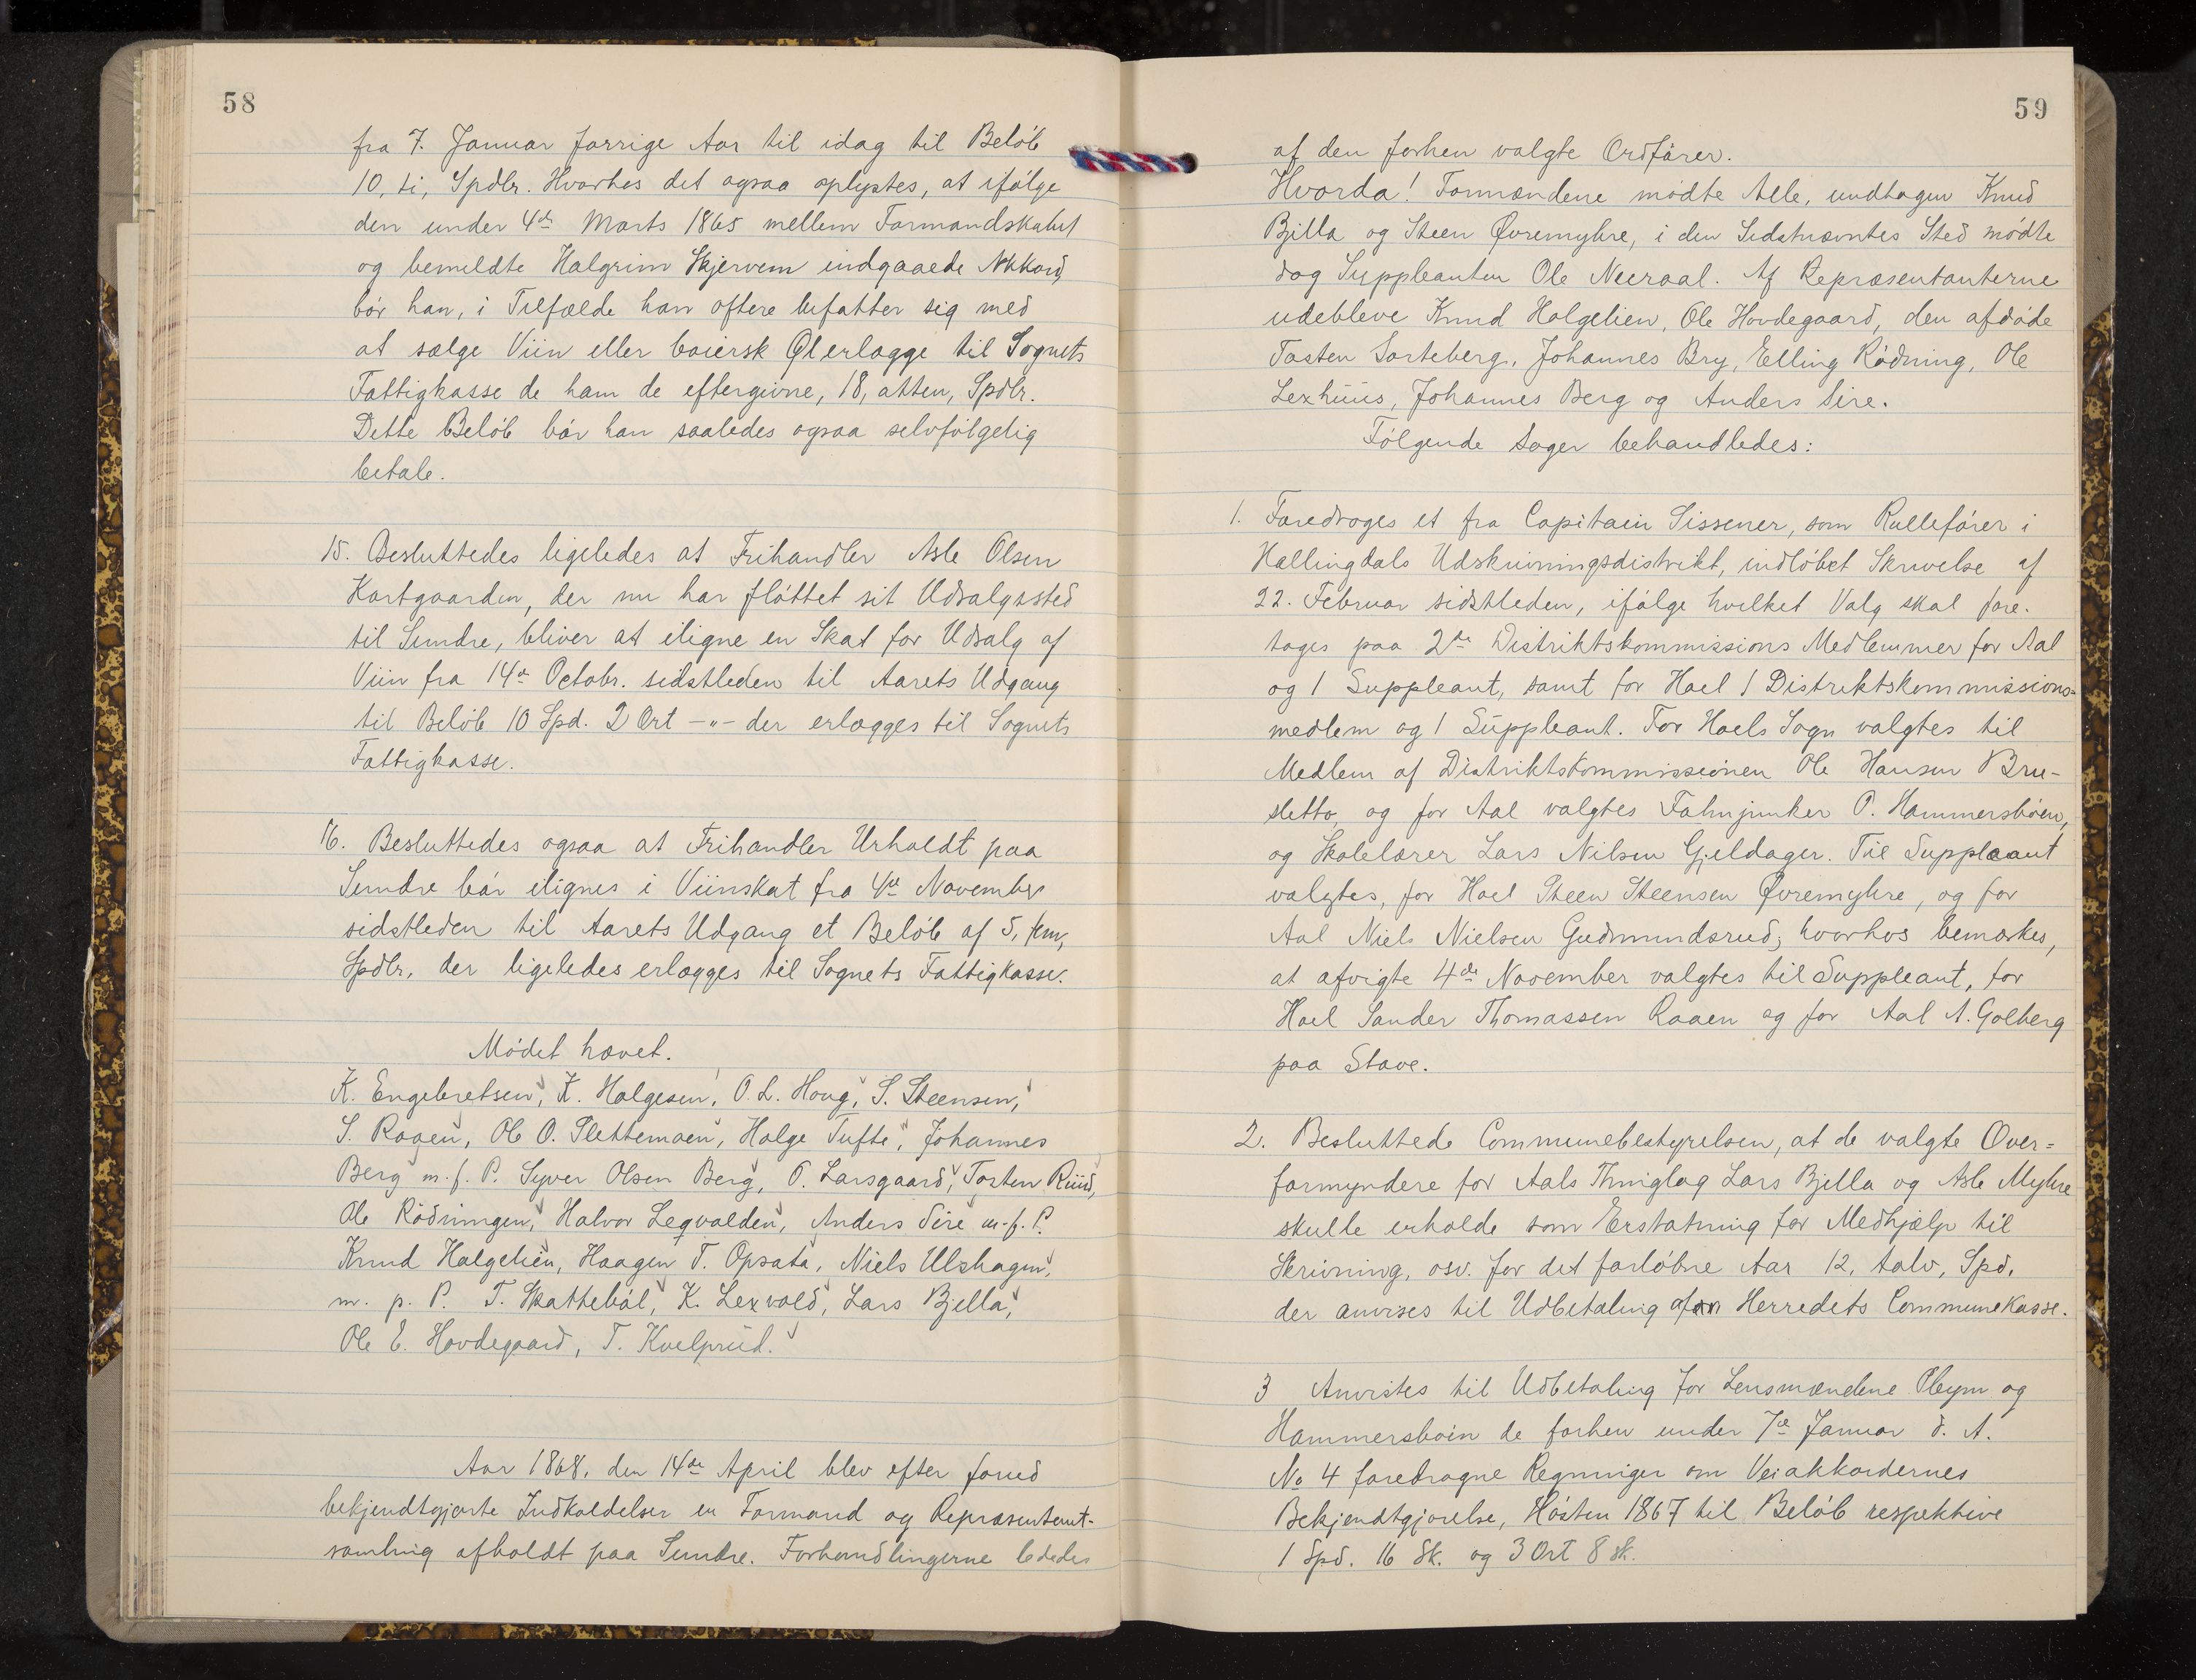 58
fra 7. Januar forrige Aar til idag til Beløb
10, ti, Spdlr. Hvorhos det ogsaa oplystes, at ifølge
den under 4de Marts 1865 mellem Formandskabet
og bemeldte Halgrim Skjervem indgaaede Akkord,
bør han, i Tilfælde han oftere befatter sig med
at sælge Viin eller baiersk Øl erlægge til Sognets
Fattigkasse de ham de eftergivne, 18, atten, Spdlr.
Dette Beløb bør han saaledes ogsaa selvfølgelig
betale.
15. Besluttedes ligeledes at Frihandler Asle Olsen
Kortgaarden, der nu har fløttet sit Udsalgssted
til Sundre, bliver at iligne en Skat for Udsalg af
Viin fra 14de Octobr. sidstleden til Aarets Udgang
til Beløb 10 Spd. 2 Ort -"- der erlægges til Sognets
Fattigkasse.
16. Besluttedes ogsaa at Frihandler Urholdt paa
Sundre bør ilignes i Viinskat fra 4de November
sidstleden til Aarets Udgang et Beløb af 5, fem,
Spdlr, der ligeledes erlægges til Sognets Fattigkasse.
Mødet hævet.
K. Engebretsen, K. Halgesen, O. L. Houg, S. Steensen,
S. Raaen, Ole O. Slettemoen, Halge Tufte, Johannes
Berg m. f. P. Syver Olsen Berg, O. Larsgaard, Torsten Ruud,
Ole Rødningen, Halvor Legvolden, Anders Sire m. f. P.
Knud Halgelien, Haagen T. Opsata, Niels Ulshagen,
m. p. P. T. Skattebøl, K. Lexvold, Lars Bjella,
Ole E. Hovdegaard, T. Kvelprud.
Aar 1868, den 14de April blev efter forud
bekjendtgjorte Indkaldelser en Formand og Repræsentant-
samling afholdt paa Sundre. Forhandlingerne lededes
59
af den forhen valgte Ordfører.
Hvorda! Formændene mødte Alle, undtagen Knud
Bjella og Steen Øvremyhre, i den Sidstnævntes Sted mødte
dog Suppleanten Ole Neeraal. Af Repræsentanterne
udebleve Knud Halgelien, Ole Hovdegaard, den afdøde
Tosten Sorteberg, Johannes Bry, Elling Rødning, Ole
Lexhuus, Johannes Berg og Anders Sire.
Følgende Sager behandledes:
1. Foredroges et fra Capitain Sissener, som Rullefører i
Hallingdals Udskrivningsdistrikt, indløbet Skrivelse af
22. Februar sidstleden, ifølge hvilket Valg skal fore-
tages paa 2de Distriktskommissions Medlemmer for Aal
og 1 Suppleant, samt for Hoel 1 Distriktskommissions-
medlem og 1 Suppleant. For Hoels Sogn valgtes til
Medlem af Distriktskommissionen Ole Hansen Bru-
sletto, og for Aal valgtes Fahnjunker O. Hammersbøen,
og Skolelærer Lars Nilsen Gjeldager. Til Suppleant
valgtes, for Hoel Steen Steensen Øvremyhre, og for
Aal Niels Nielsen Gudmundsrud; hvorhos bemærkes,
at afvigte 4de November valgtes til Suppleant, for
Hoel Sander Thomassen Raaen og for Aal A. Golberg
paa Stave.
2. Besluttede Communebestyrelsen, at de valgte Over=
formyndere for Aals Thinglag Lars Bjella og Asle Myhre
skulle erholde som Erstatning for Medhjælp til
Skrivning, osv. for det forløbne Aar 12, tolv, Spd,
der anvises til Udbetaling af Herredets Communekasse.
3 Anvistes til Udbetaling for Lensmændene Pleym og
Hammersboin de forhen under 7de Januar d. A.
No 4 foredragne Regninger om Veiakkordernes
Bekjendtgjørelse, Høsten 1867 til Beløb respektive
1 Spd. 16 Sk. og 3 Ort 8 Sk.